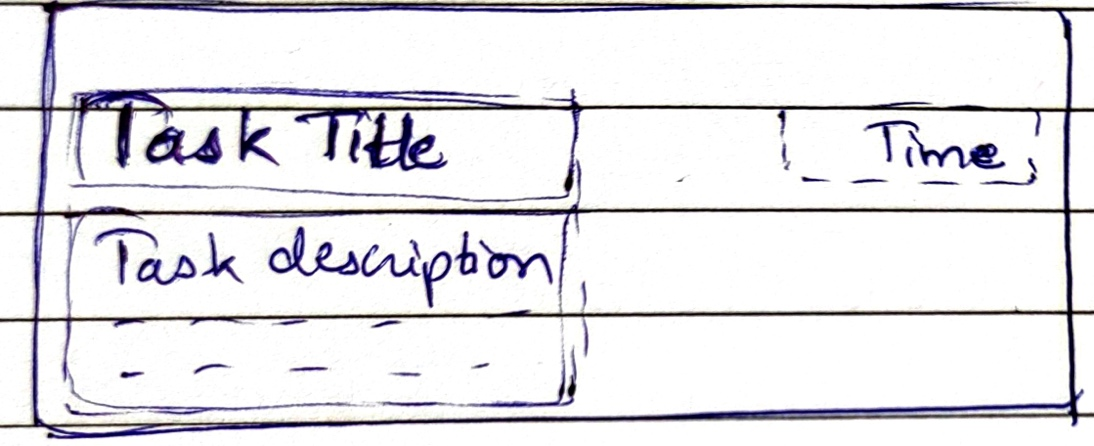 Task Title
Time
Task description